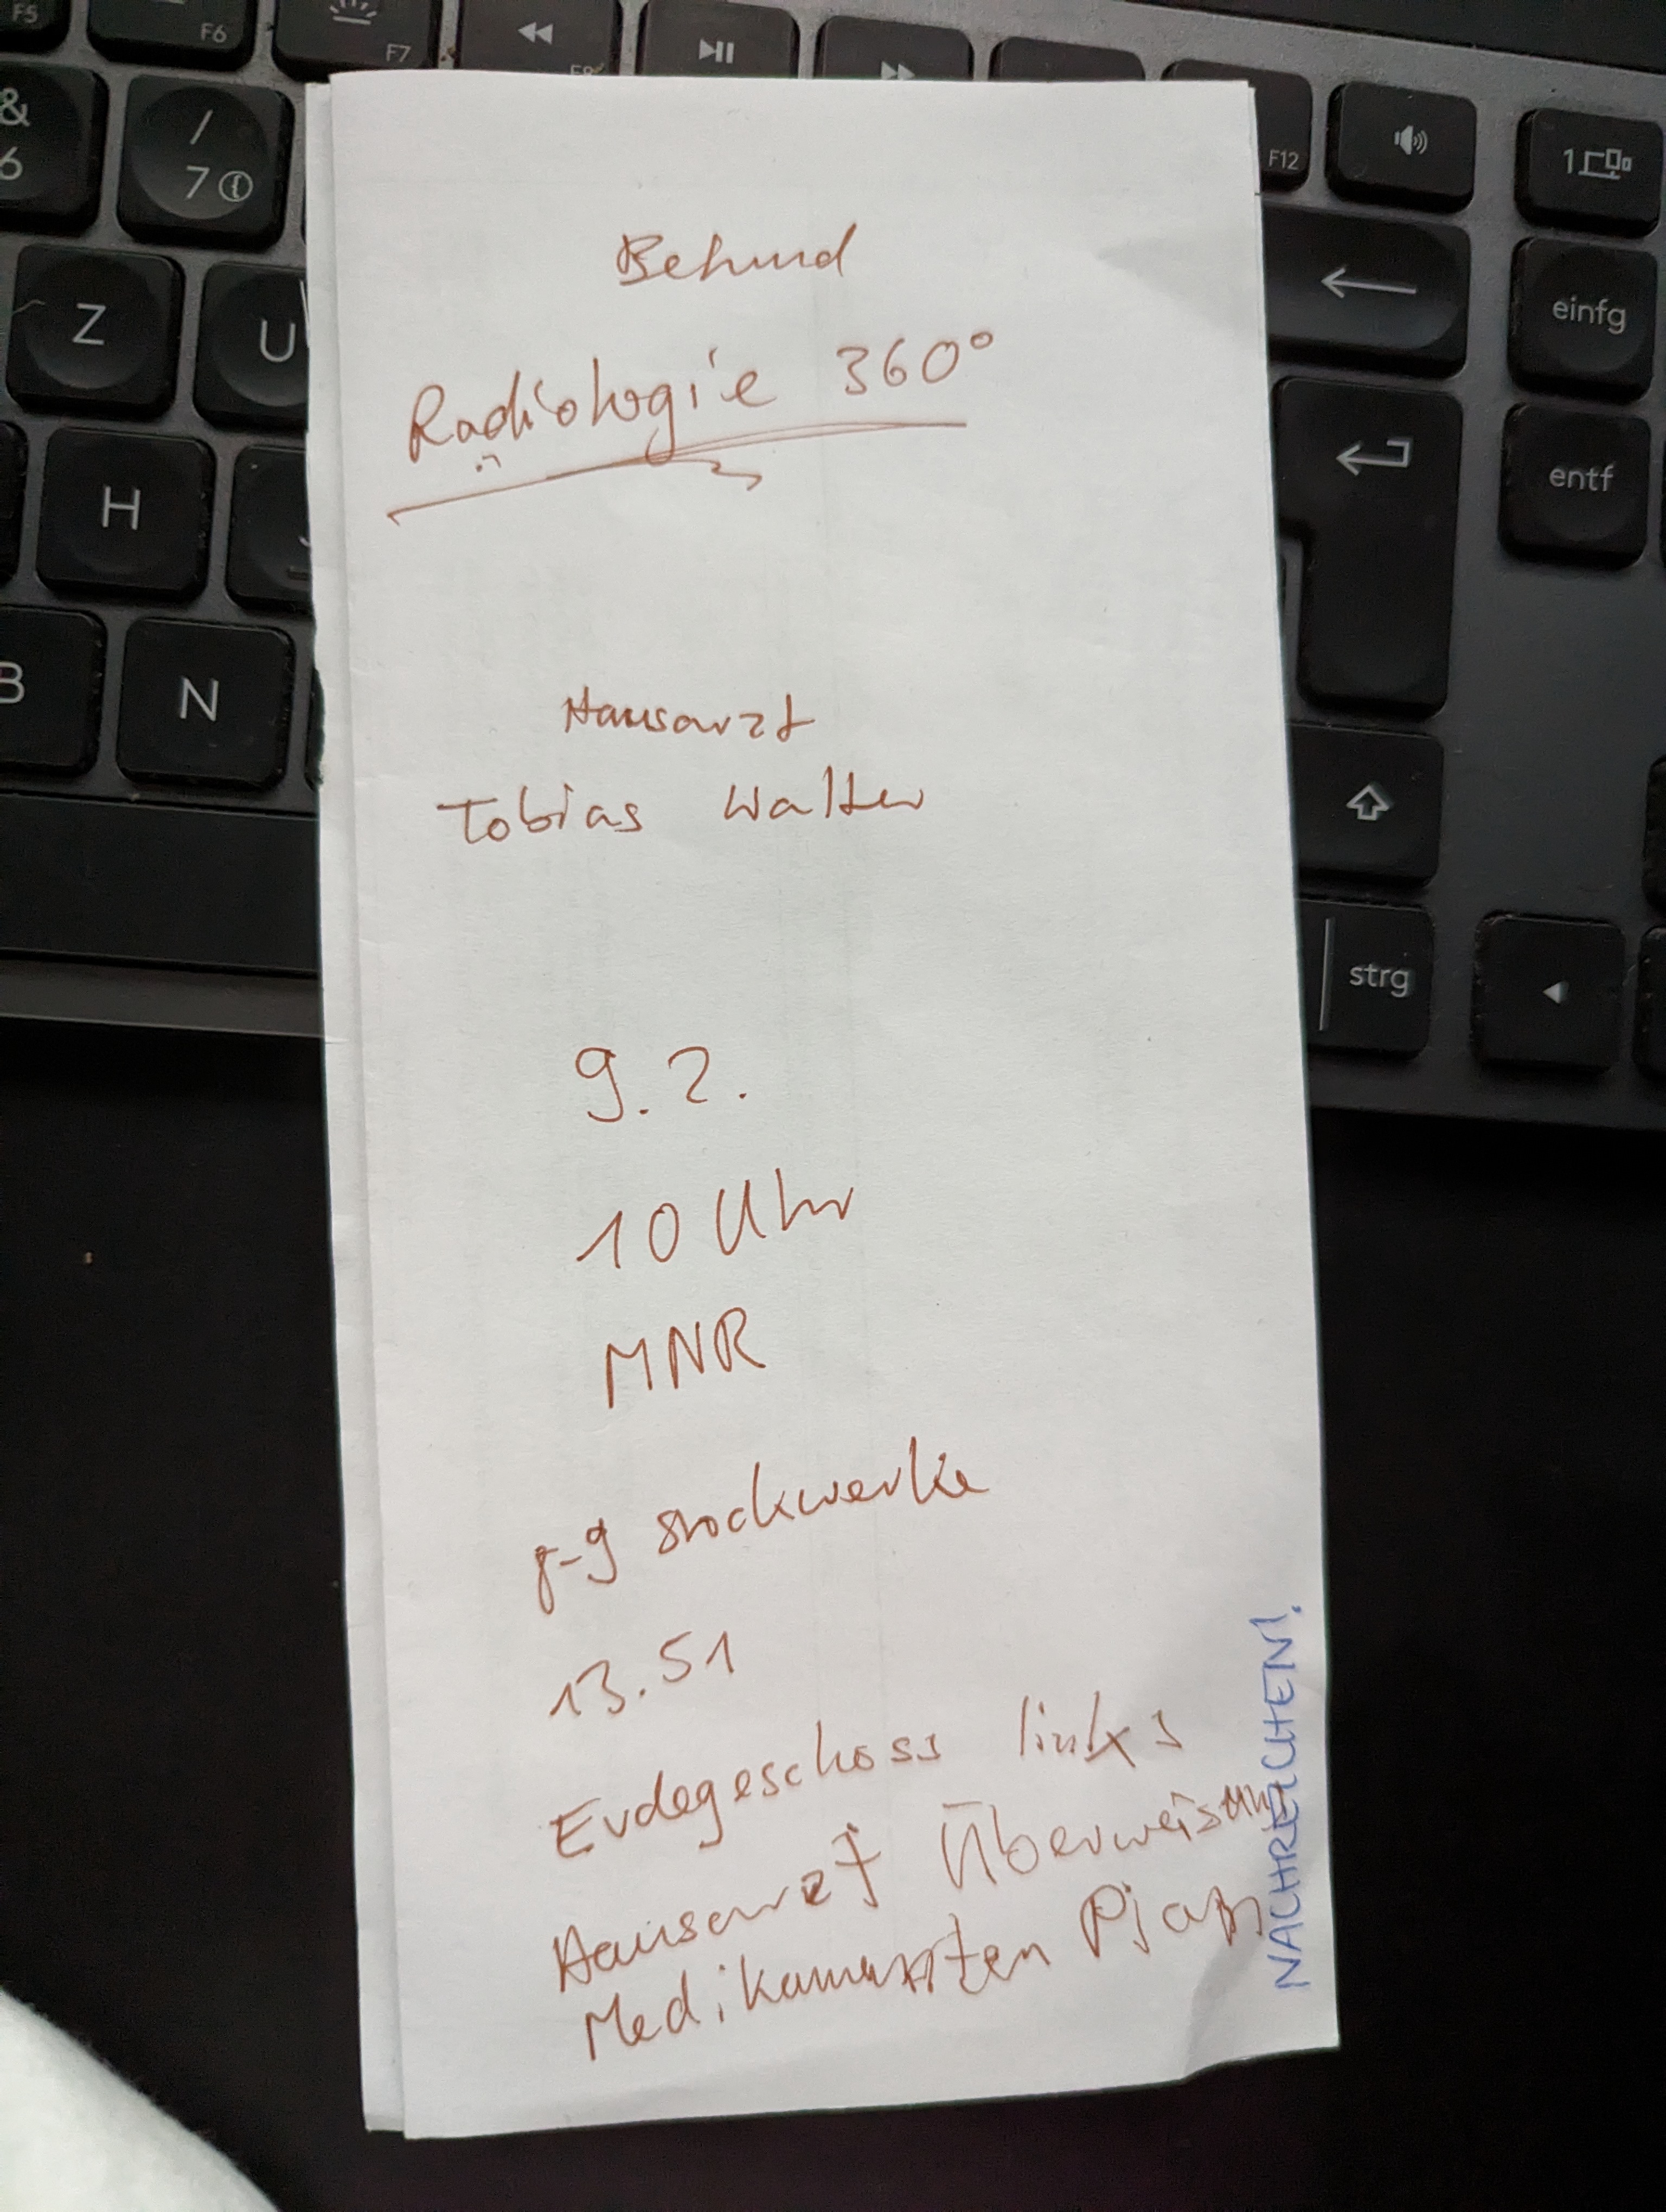 F5
F6
F7
F12
&
6
/
7
Z
U
einfg
H
entf
B
N
strg
Befund
Radiologie 360°
Hausarzt
Tobias Walter
9.2.
10 Uhr
MNR
Stockwerke
13.51
Erdgeschoss links
Hausarzt Überweisung
Medikamenten Plan
NACHREICHEN!